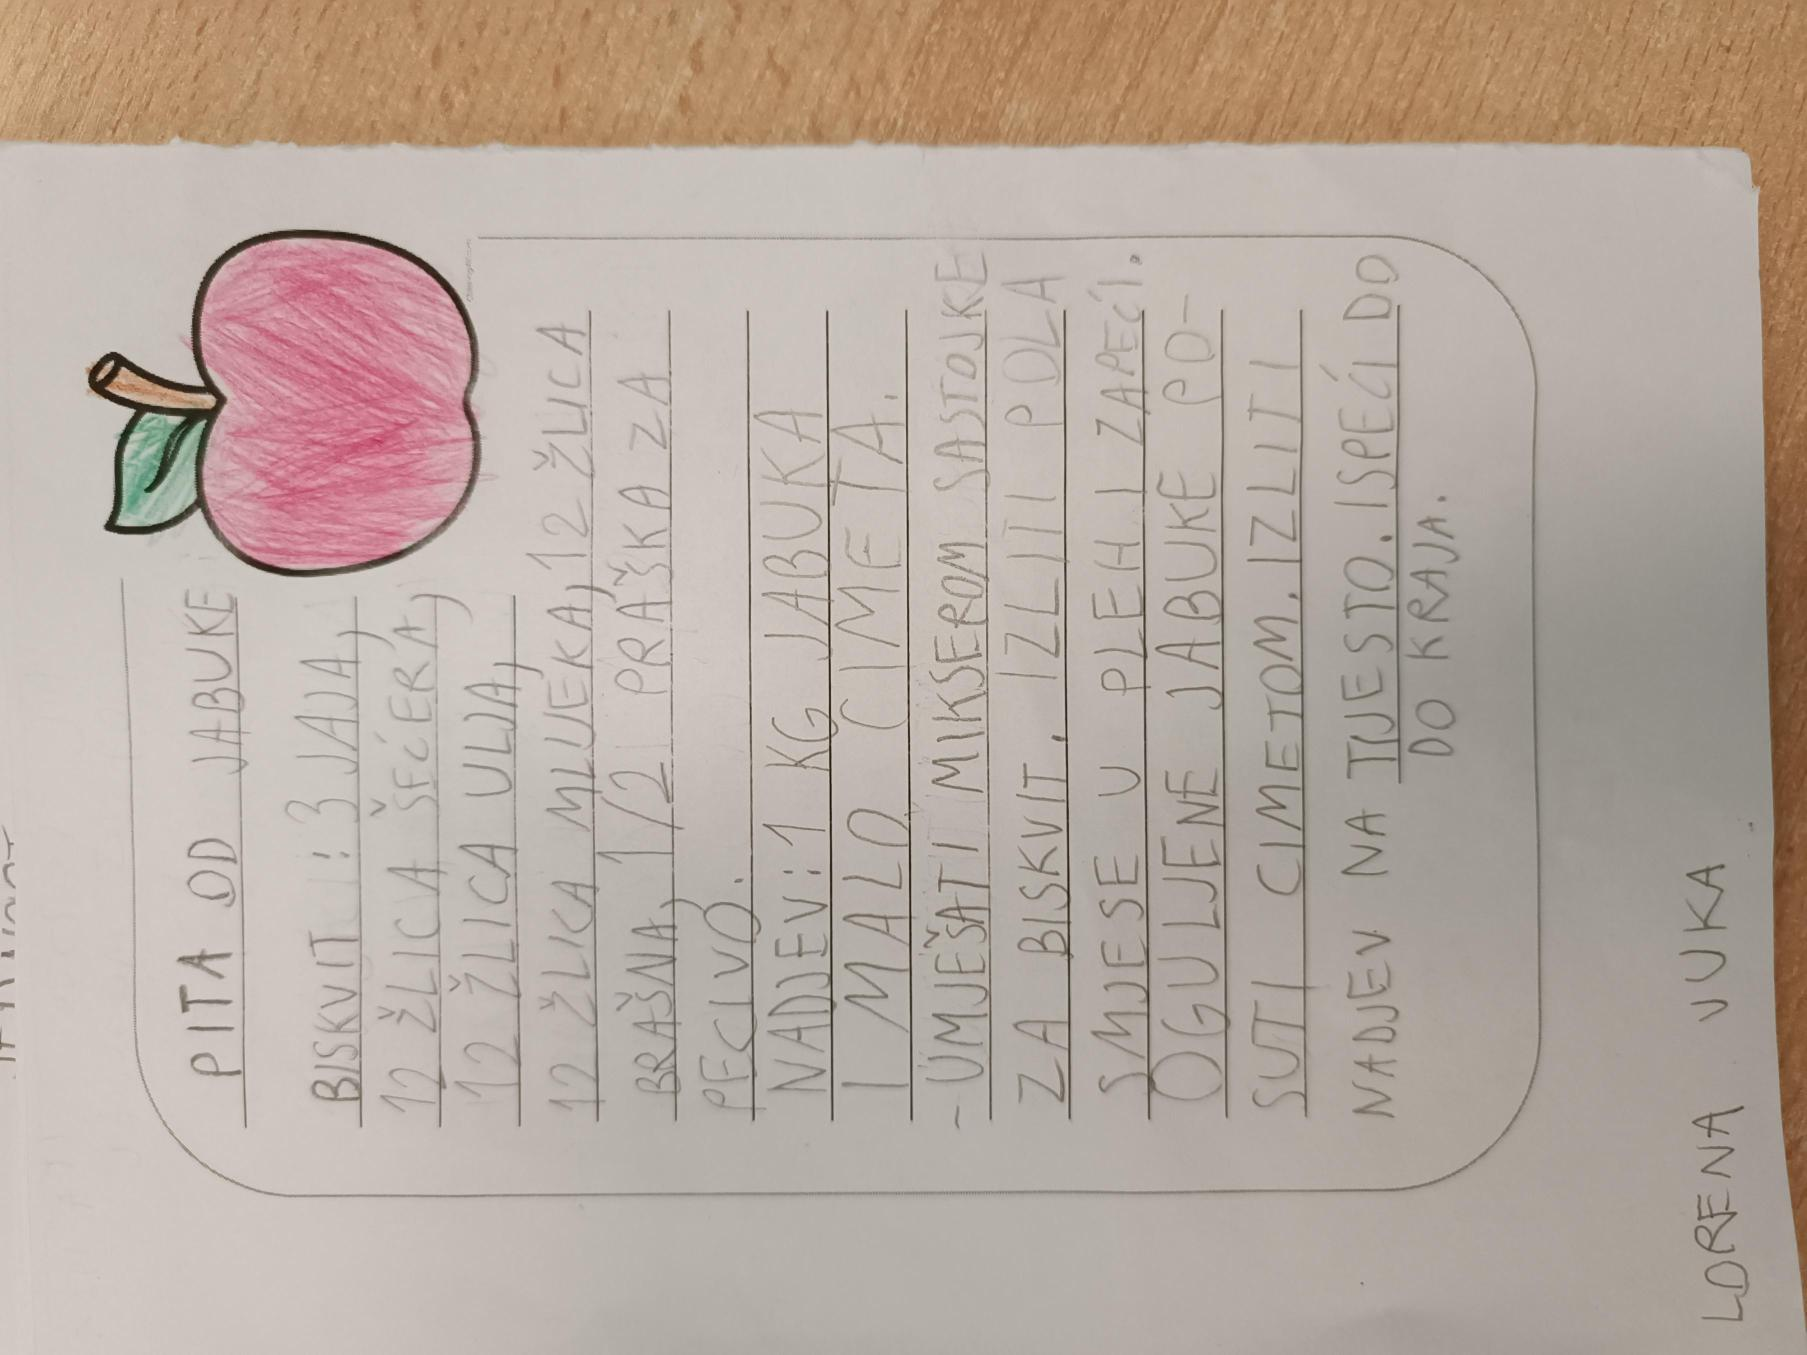 PITA OD JABUKE
BISKVIT : 3 JAJA,
12 ŽLICA ŠEĆERA,
12 ŽLICA ULJA,
12 ŽLIKA MLIJEKA, 12 ŽLICA
BRAŠNA, 1/2 PRAŠKA ZA
PECIVO.
NADJEV : 1 KG JABUKA
I MALO CIMETA.
- UMJEŠATI MIKSEROM SASTOJKE
ZA BISKVIT. IZLITI POLA
SMJESE U PLEH I ZAPEĆI.
OGULJENE JABUKE PO-
SUTI CIMETOM. IZLITI
NADJEV NA TIJESTO. ISPEĆI DO
DO KRAJA.
LORENA VUKA